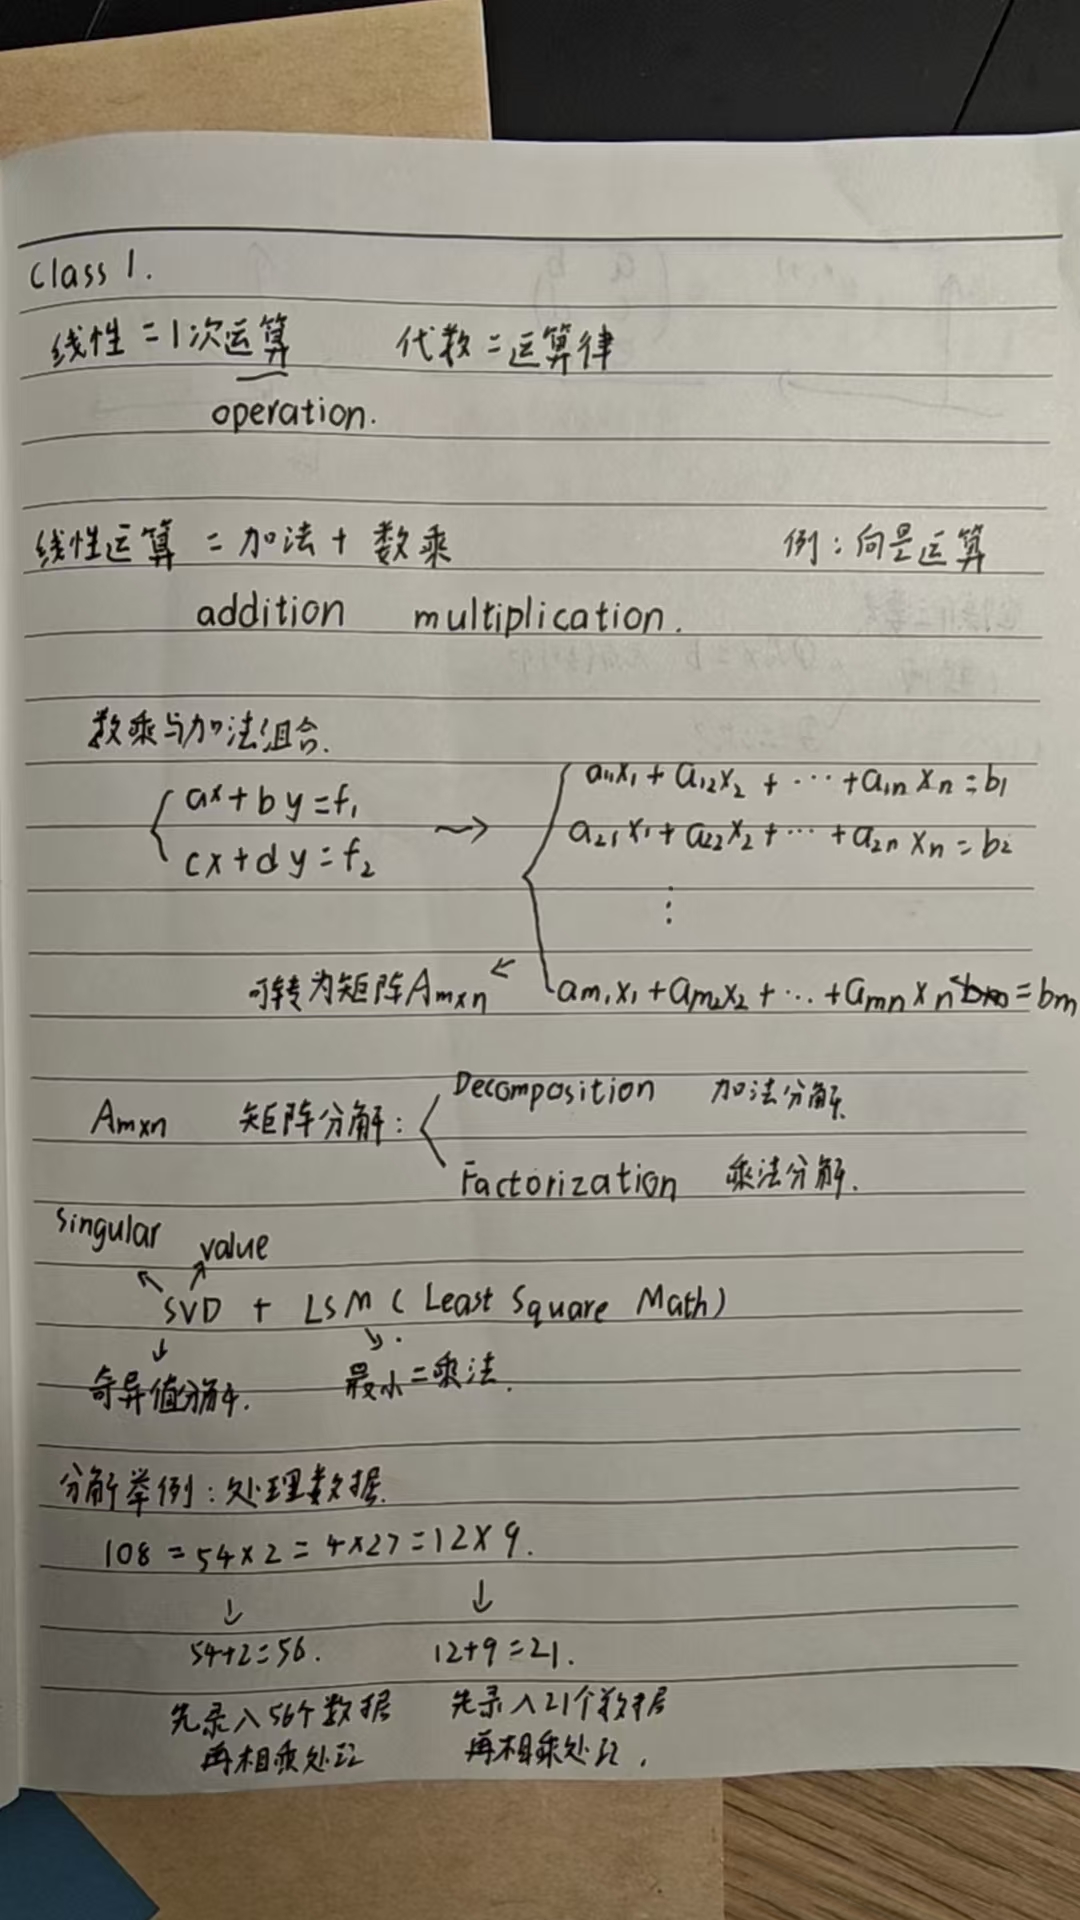 Class 1.
线性=1次运算 代数=运算律
operation.
线性运算=加法+数乘 例:向量运算
addition multiplication.
数乘与加法组合.
ax+by=f₁
cx+dy=f₂
a₁₁x₁+a₁₂x₂+⋯+a₁ₙxₙ=b₁
a₂₁x₁+a₂₂x₂+⋯+a₂ₙxₙ=b₂
⋮
可转为矩阵Am×n ← am₁x₁+am₂x₂+⋯+amnxn=bm
Am×n 矩阵分解:
Decomposition 加法分解.
Factorization 乘法分解.
singular value
SVD + LSM (Least Square Math)
奇异值分解. 最小二乘法.
分解举例:处理数据.
108=54×2=4×27=12×9.
↓ ↓
54+2=56. 12+9=21.
先录入56个数据 先录入21个数据
再相乘处理 再相乘处理.